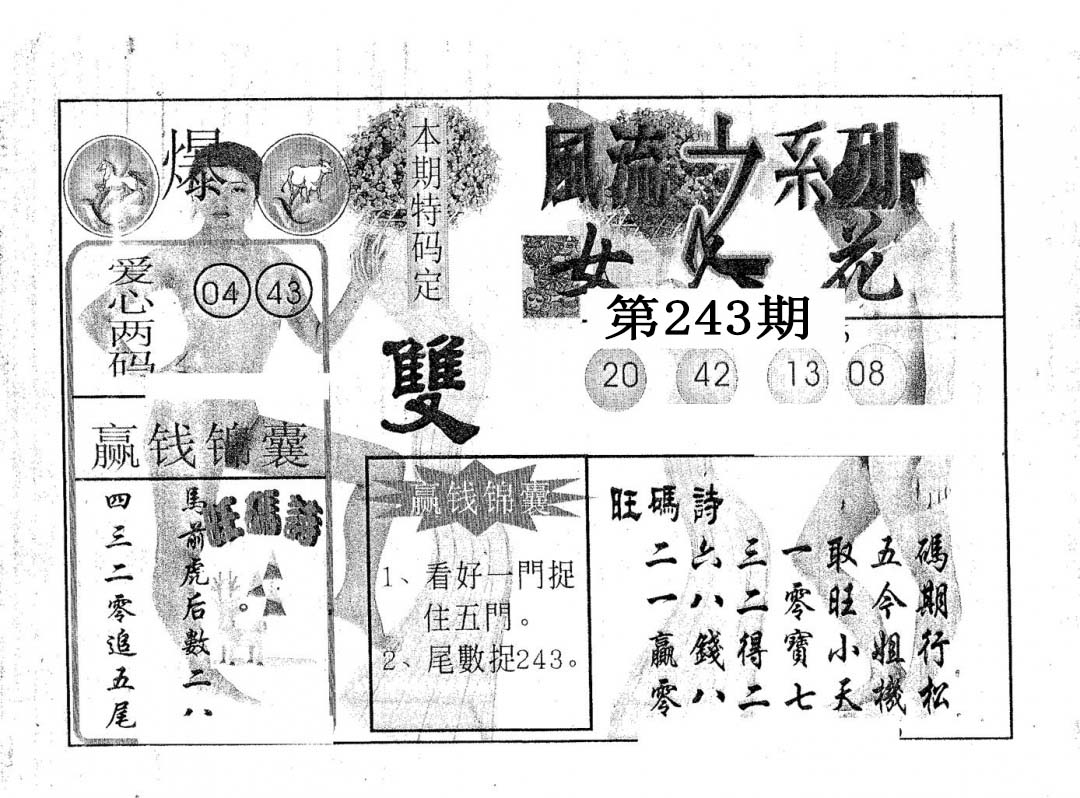 爆
爱心两码
04 43
赢钱锦囊
馬前虎后數二八
四三二零追五尾
旺碼詩
本期特码定
雙
風流之系列
女人花
第243期
20 42 13 08
赢钱锦囊
1、看好一門捉
住五門。
2、尾數捉243。
旺碼詩
碼期行松
五今姐機
取旺小天
一零寶七
三二得二
六八錢八
二一贏零